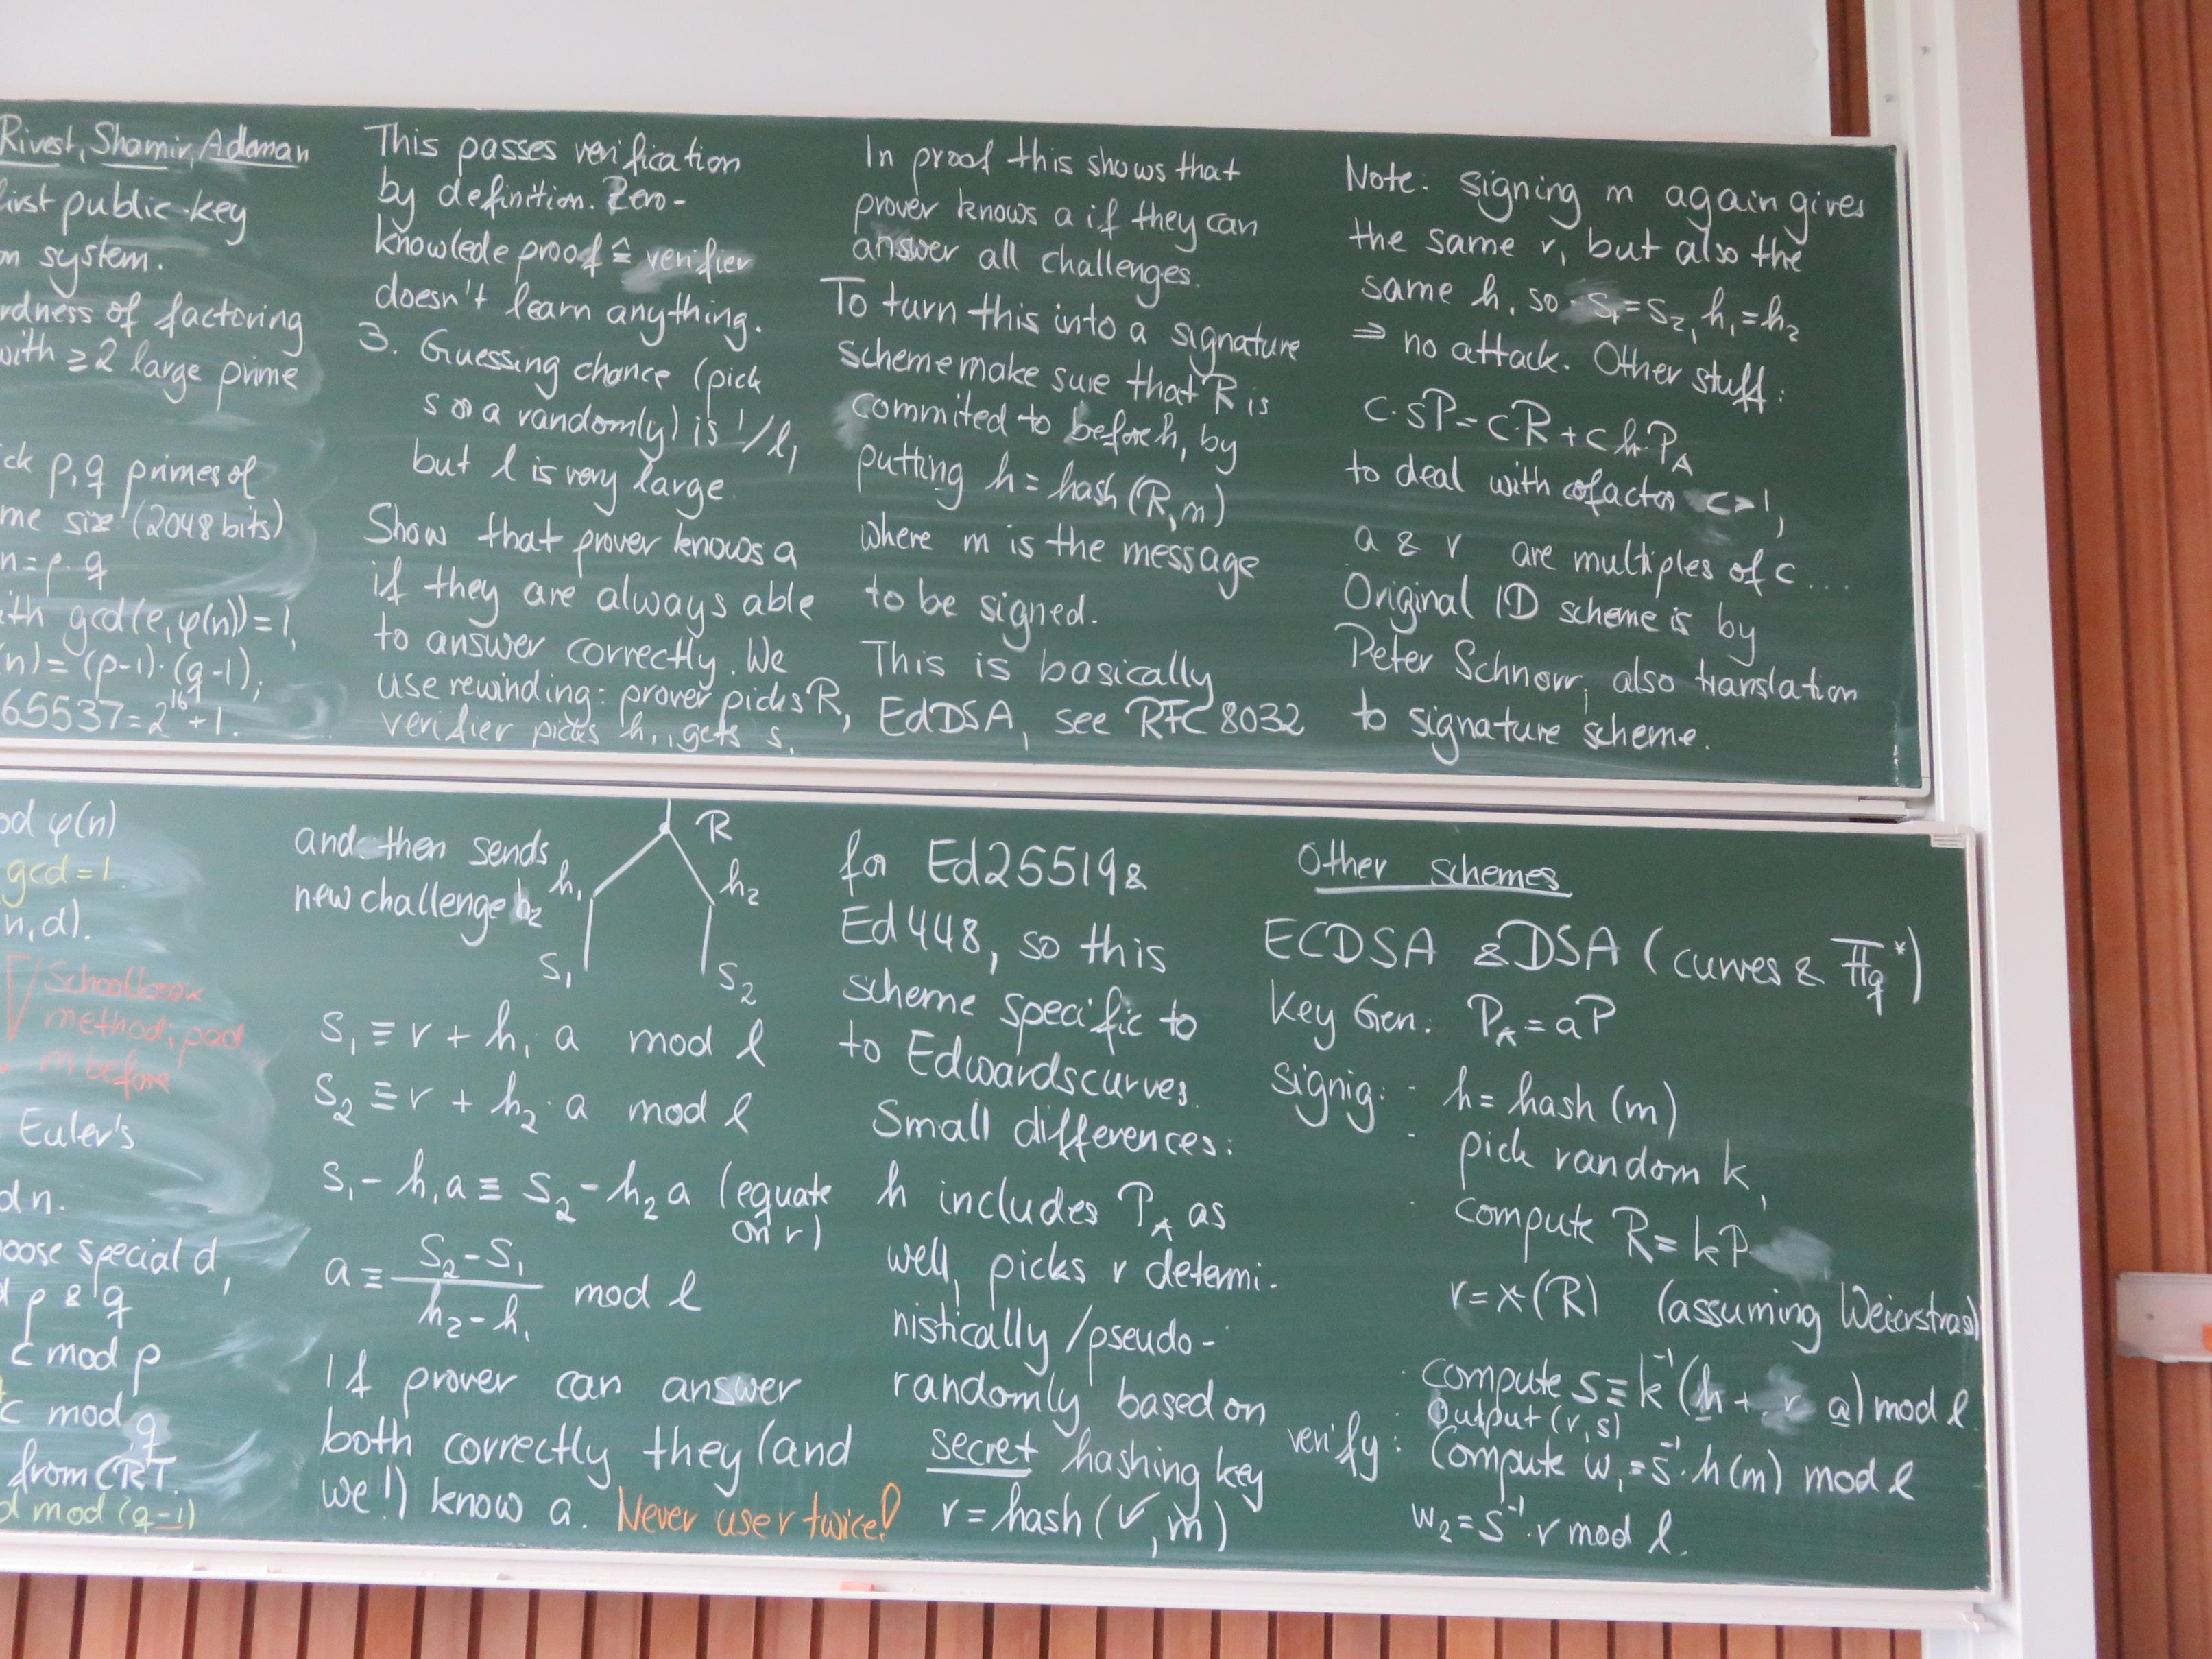 Rivest, Shamir, Adleman
first public-key
on system.
rdness of factoring
with ≥2 large prime
ck p,q primes of
me size (2048 bits)
n=p·q
ith gcd(e,φ(n))=1,
(n)=(p-1)·(q-1);
65537=2^16+1.
This passes verification
by definition. Zero-
knowlede proof ≙ verifier
doesn't learn anything.
3. Guessing chance (pick
s or a randomly) is 1/l,
but l is very large.
Show that prover knows a
if they are always able
to answer correctly. We
use rewinding: prover picks R,
verifier picks h₁, gets s₁
In proof this shows that
prover knows a if they can
answer all challenges.
To turn this into a signature
scheme make sure that R is
commited to before h, by
putting h = hash (R,m)
where m is the message
to be signed.
This is basically
EdDSA, see RFC 8032
Note: signing m again gives
the same r, but also the
same h, so s₁=s₂, h₁=h₂
⇒ no attack. Other stuff:
c·sP=cR+ch·P_A
to deal with cofactor c>1,
a & r are multiples of c...
Original ID scheme is by
Peter Schnorr, also translation
to signature scheme.
od φ(n)
gcd=1
n,d).
Schoolbook
method; pad
m before
Euler's
d n.
oose special d,
d p & q
c mod p
c mod q
from CRT.
d mod (q-1)
and then sends
new challenge h₂
R
h₁ h₂
s₁ s₂
s₁ ≡ r + h₁ a mod l
s₂ ≡ r + h₂·a mod l
s₁-h₁a ≡ s₂-h₂a (equate
on r)
a ≡ (s₂-s₁)/(h₂-h₁) mod l
If prover can answer
both correctly they (and
we!) know a. Never use r twice!
for Ed25519 &
Ed448, so this
scheme specific to
to Edwards curves.
Small differences:
h includes P_A as
well, picks r determi-
nistically/pseudo-
randomly based on
secret hashing key
r = hash (✓, m)
Other schemes
ECDSA & DSA (curves & 𝔽q*)
Key Gen: P_A = aP
signig: h= hash (m)
pick random k,
compute R= kP
r=x(R) (assuming Weierstrass)
compute s≡k⁻¹(h+ r a) mod l.
Output (r,s)
verify: Compute w₁=s⁻¹·h(m) mod l
w₂=s⁻¹·r mod l.